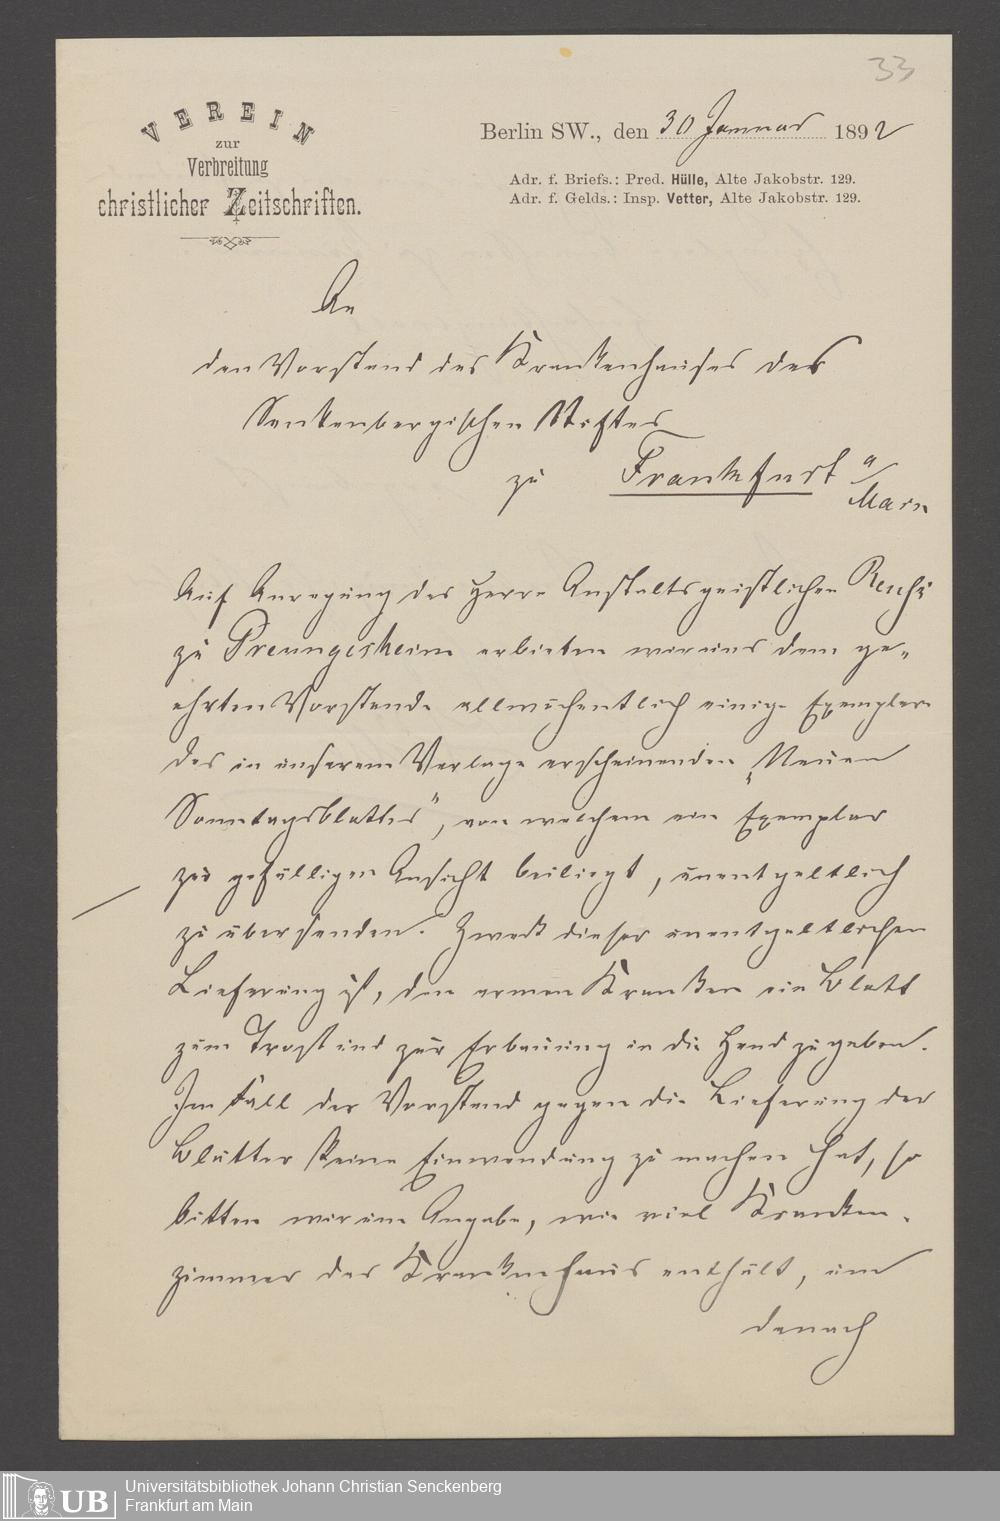 33
VEREIN
zur
Verbreitung
christlicher Zeitschriften.
Berlin SW., den 30 Januar 1892
Adr. f. Briefs.: Pred. Hülle, Alte Jakobstr. 129.
Adr. f. Gelds.: Insp. Vetter, Alte Jakobstr. 129.
An
den Vorstand des Krankenhauses des
Senkenbergischen Stiftes
zu Frankfurt a/
Main
Auf Anregung des Herrn Anstaltsgeistlichen
zu Preungesheim erbieten wir uns dem ge-
ehrten Vorstande allwöchentlich einige Exemplare
des in unserem Verlage erscheinenden „Neuen
Sonntagsblattes", von welchem ein Exemplar
zur gefälligen Ansicht beiliegt, unentgeltlich
zu übersenden. Zweck dieser unentgeltlichen
Lieferung ist, den armen Kranken ein Blatt
zum Trost und zur Erbauung in die Hand zu geben.
Im Fall der Vorstand gegen die Lieferung der
Blätter keine Einwendung zu machen hat, so
bitten wir um Angabe, wie viel Kranken-
zimmer das Krankenhaus enthält, um
danach
UB
Universitätsbibliothek Johann Christian Senckenberg
Frankfurt am Main